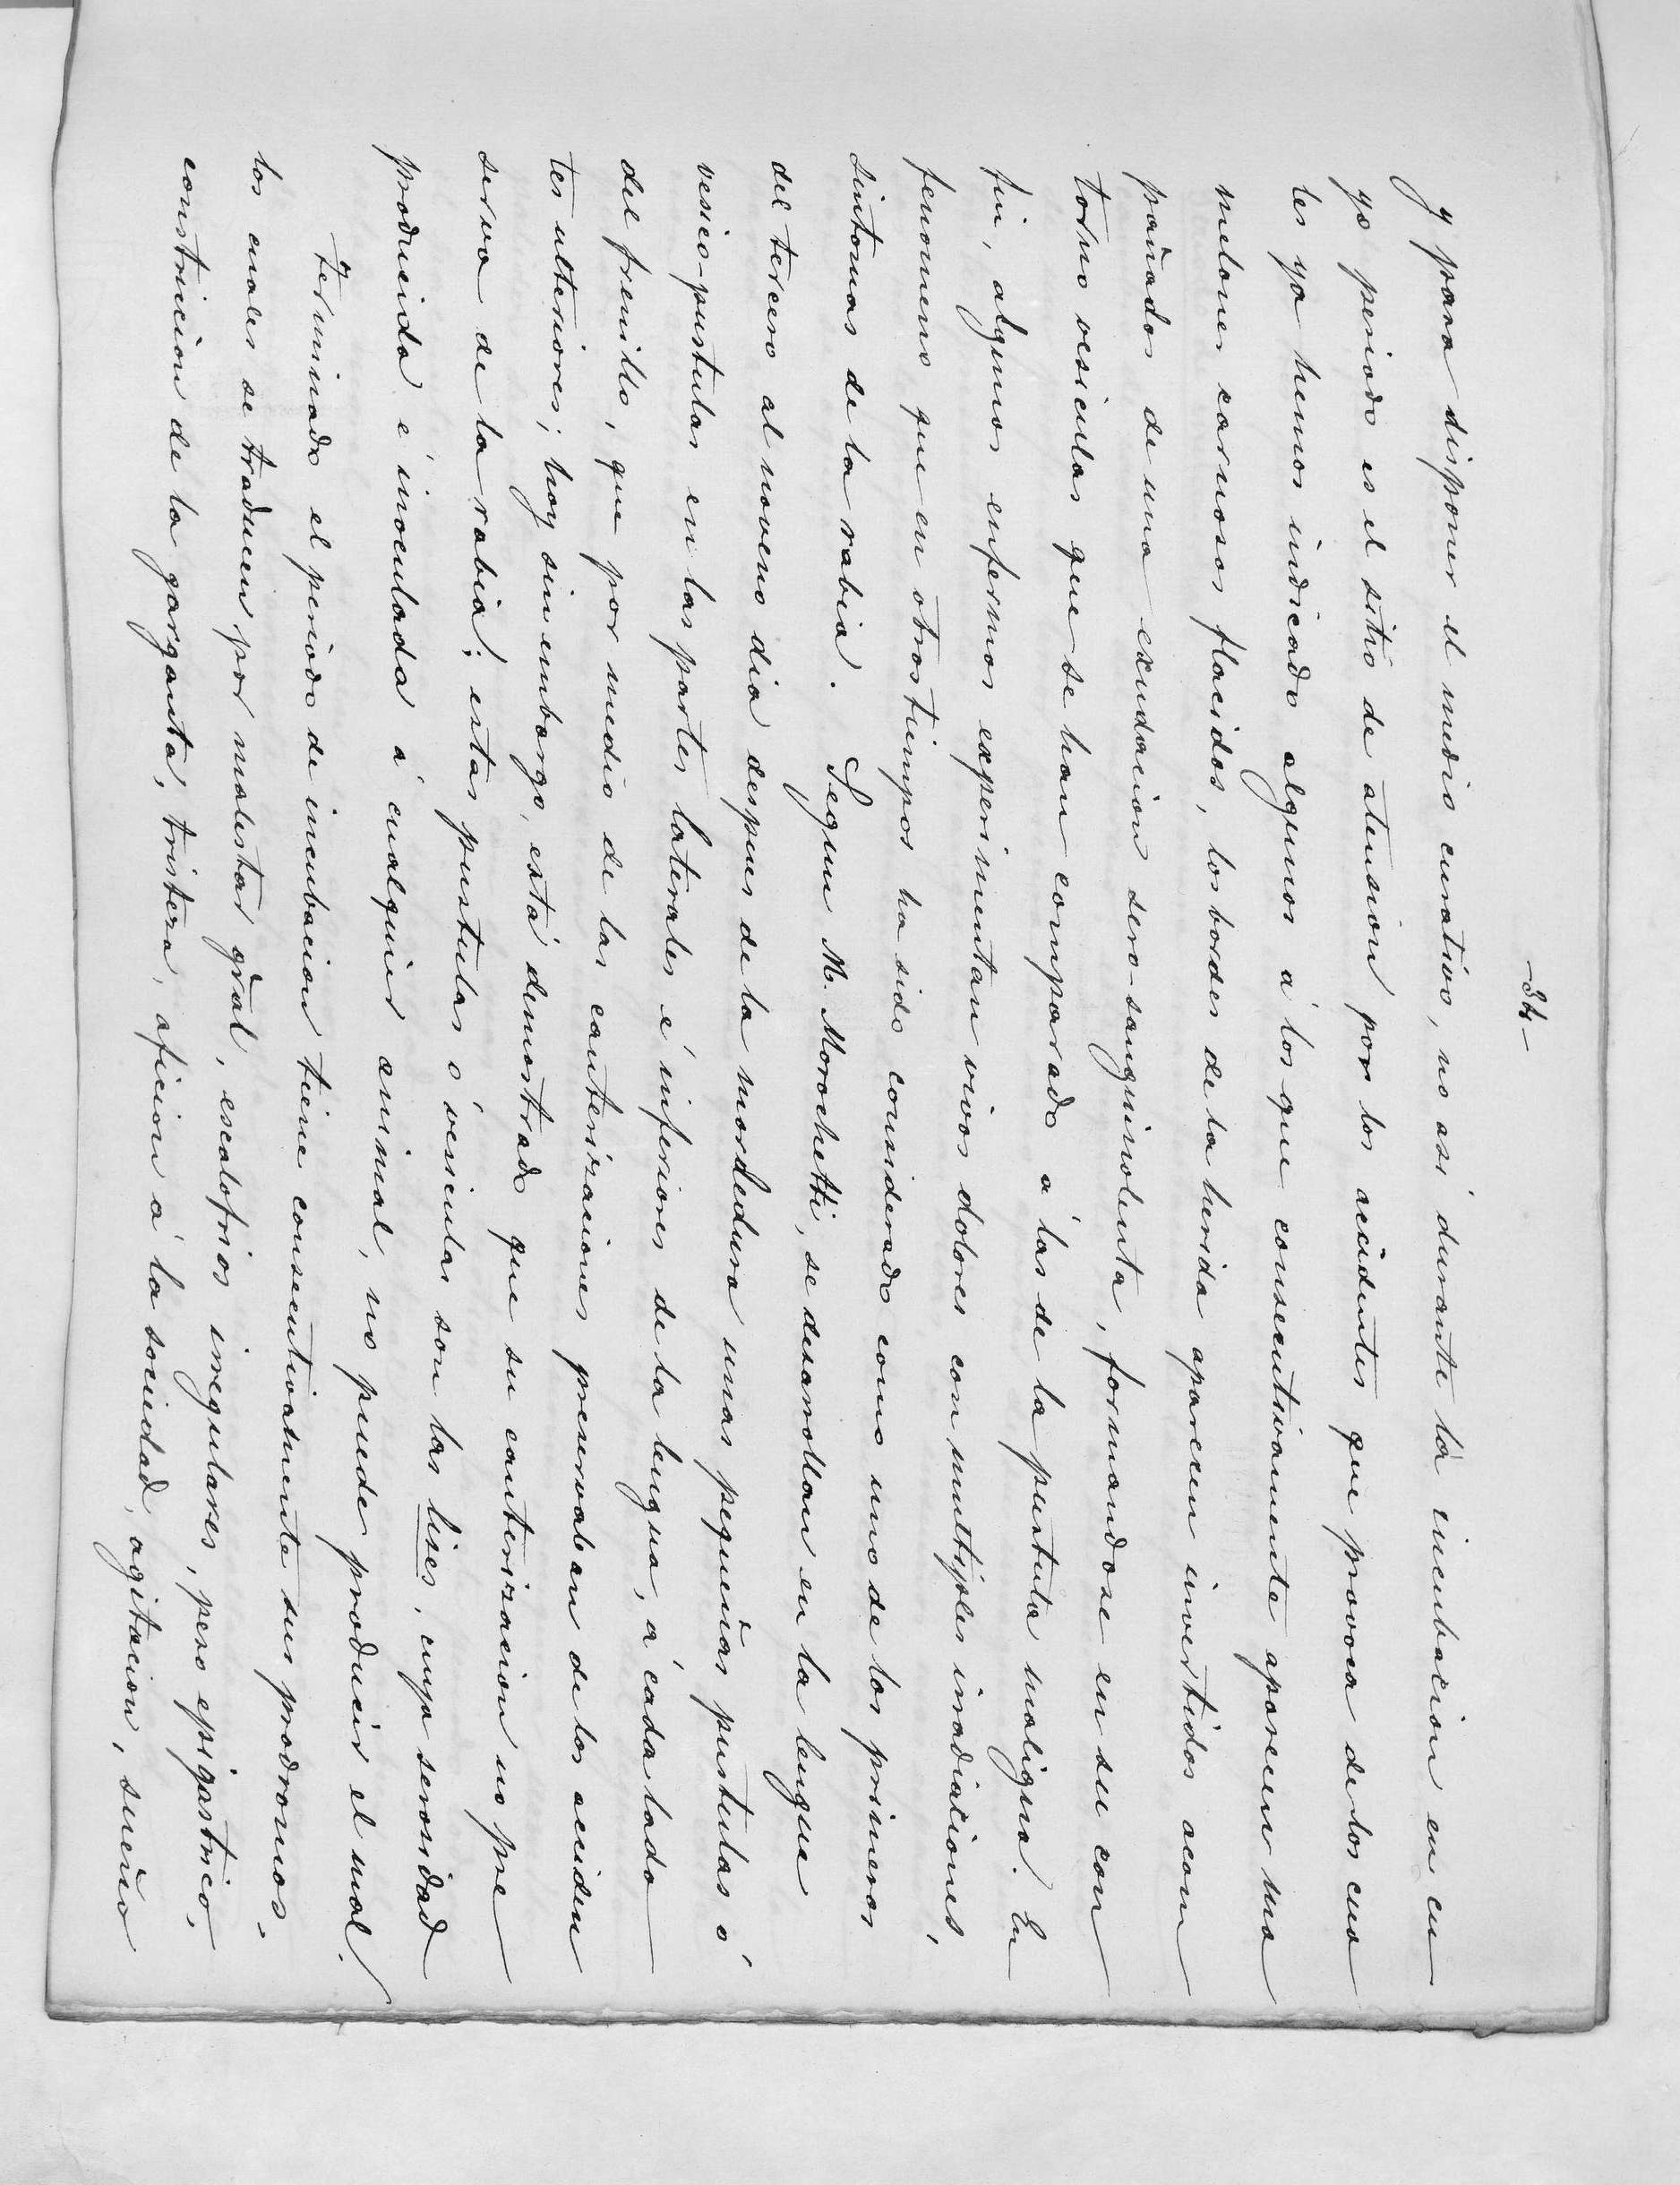 -34-
y para disponer el medio curativo, no asi durante la incubacion en cu
yo periodo es el sitio de atension por los accidentes que provoca de los cua
les ya hemos indicado algunos á los que consecutivamente aparecen ma
melones carnosos flacidos, los bordes de la herida aparecen invertidos acom
pañados de una exudacion sero-sanguinolenta, formandose en su con
torno vesiculas que se han comparado á las de la pustula maligna. En
fin, algunos enfermos experimentan vivos dolores con multiples irradiaciones,
fenomeno que en otros tiempos ha sido considerado como uno de los primeros
sintomas de la rabia. Segun M. Marochetti, se desarrollan en la lengua
del tercero al noveno dia despues de la mordedura unas pequeñas pustulas ó
vesico-pustulas en las partes laterales é inferiores de la lengua, á cada lado
del frenillo, que por medio de las cauterizaciones preservaban de los acciden
tes ulteriores; hoy sin embargo, está demostrado que su cauterizacion no pre
serva de la rabia; estas pustulas ó vesiculas son las lises, cuya serosidad
producida é inoculada á cualquier animal, no puede producir el mal.
Terminado el periodo de incubacion tiene consecutivamente sus prodromos,
los cuales se traducen por malestar gral, escalofrios irregulares, peso epigastrico,
constriccion de la garganta, tristeza, aficion á la sociedad, agitacion, sueño